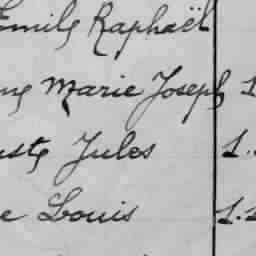 Emile Raphaël
Marie Joseph 1
Jules 1.
Louis 1.